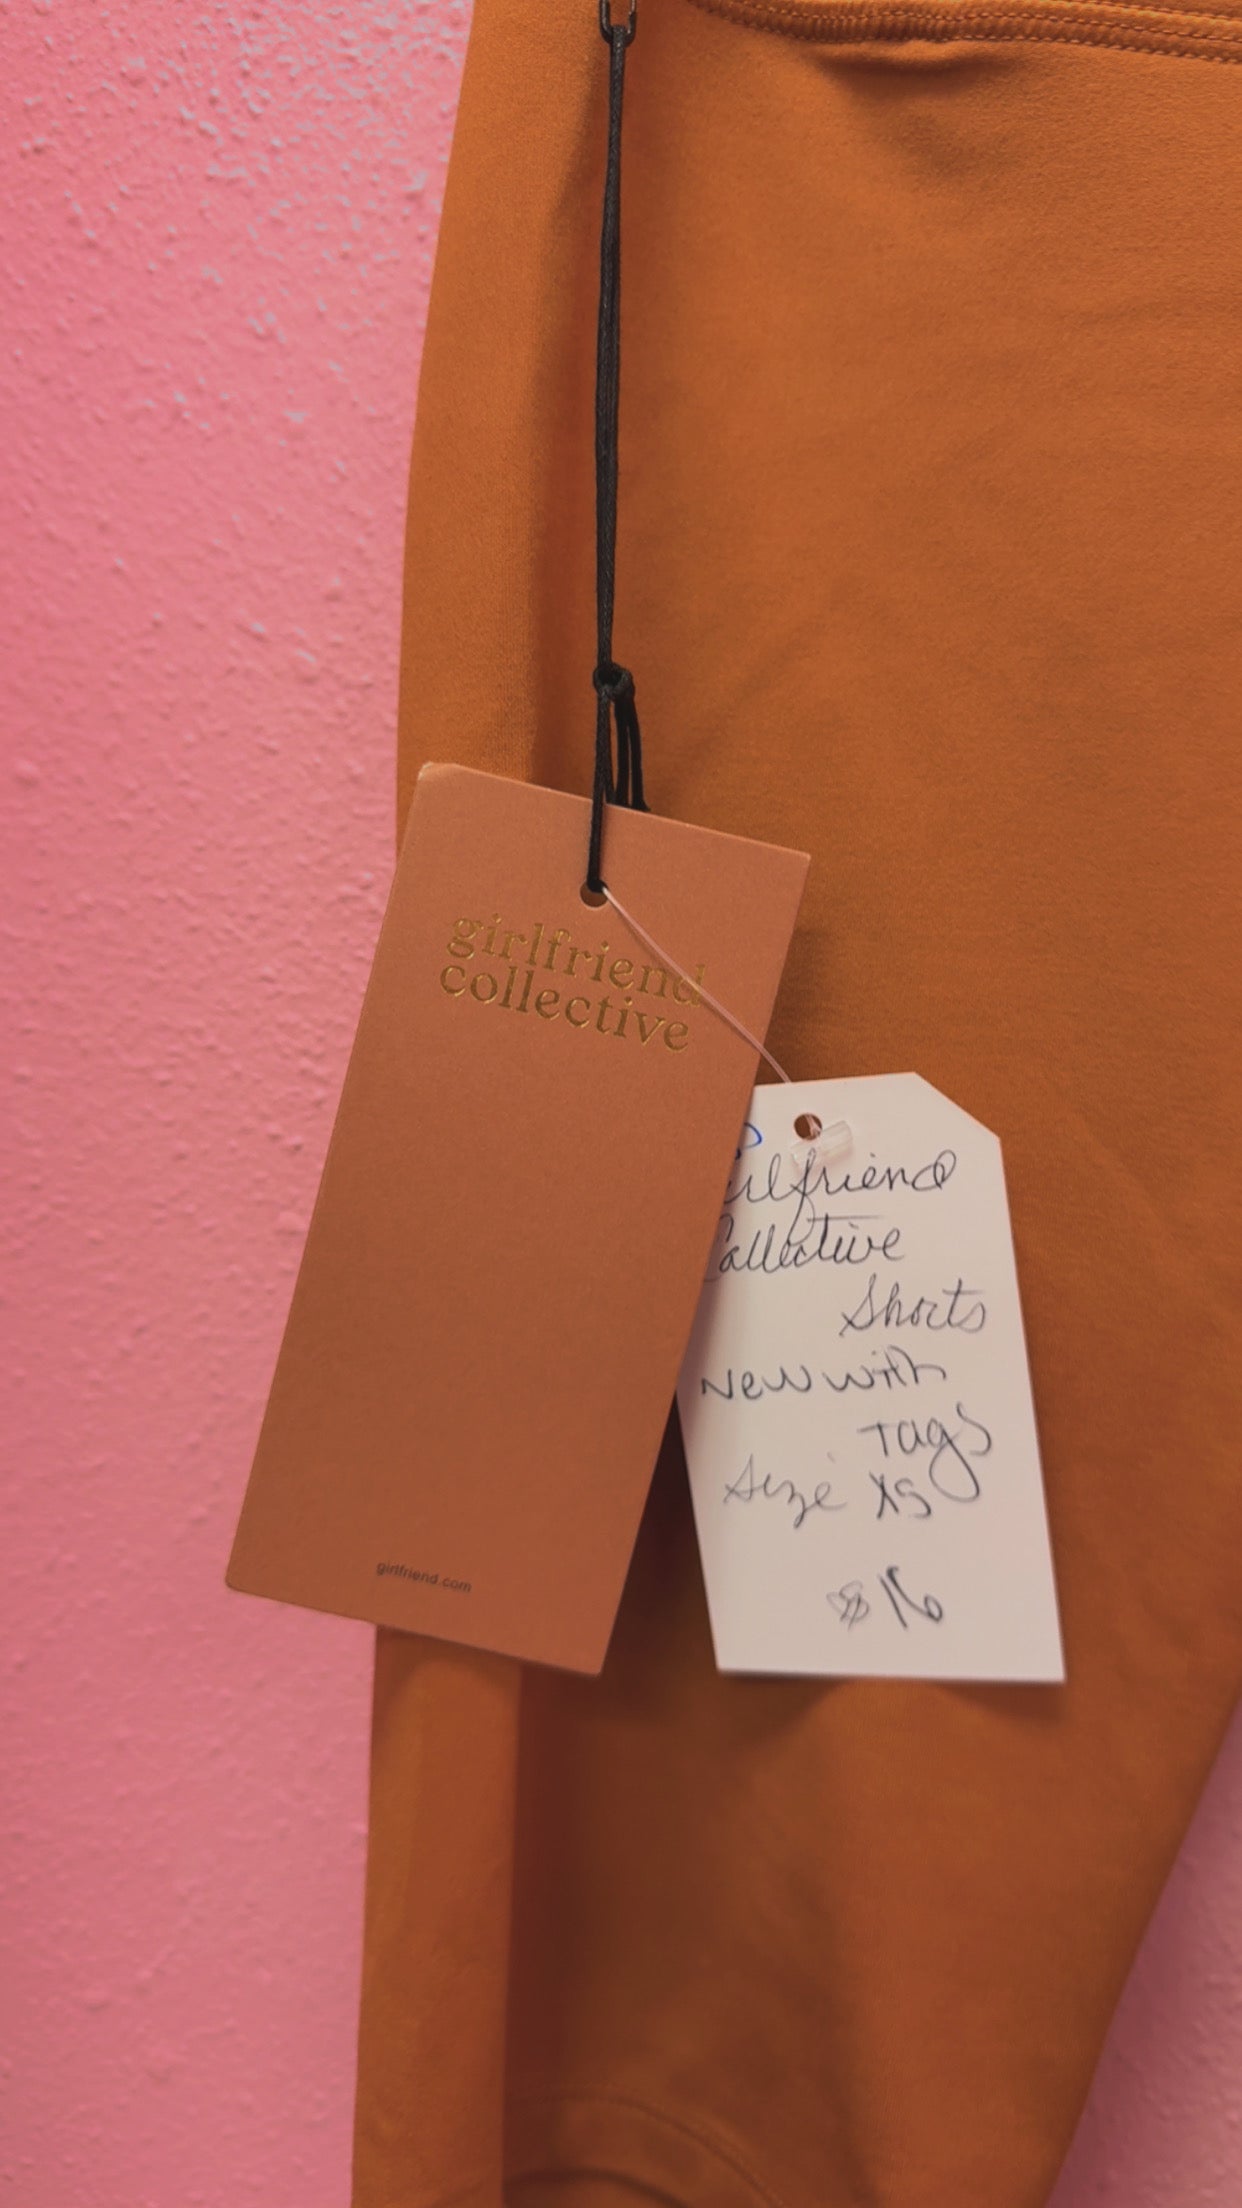 girlfriend
collective
girlfriend.com
irlfriend
Collective
Shorts
New with
Tags
Size XS
$16